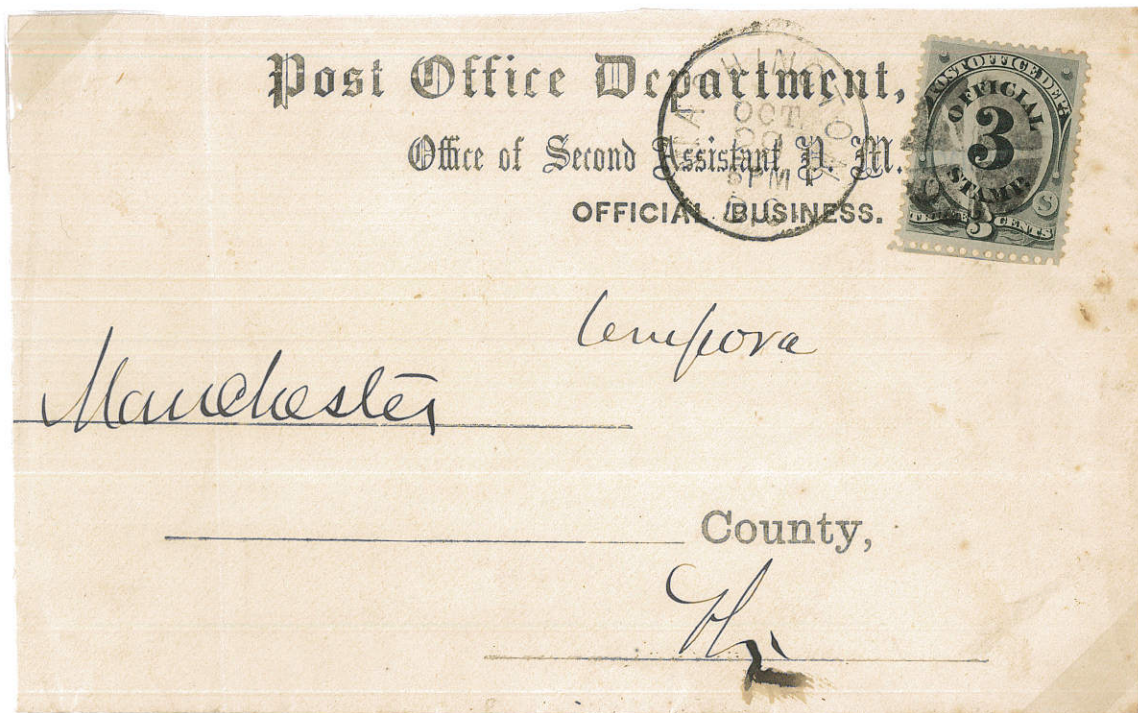 Post Office Department,
Office of Second Assistant P. M.
OFFICIAL BUSINESS.
WASHINGTON
OCT
5 PM
D.C.
POST OFFICE DEPT.
OFFICIAL
3
STAMP.
U S
THREE 3 CENTS
Manchester
County,